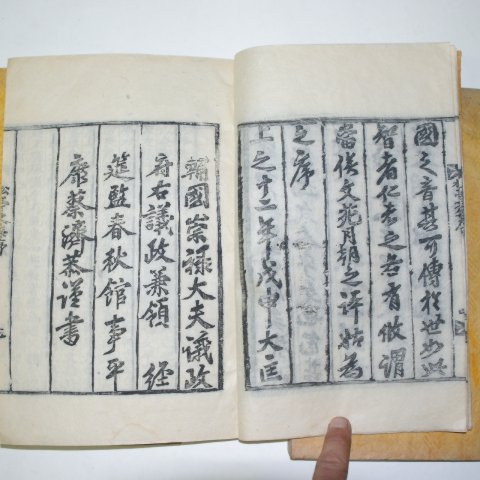 國之音甚可傳於世少此
智者仁者之各有攸謂
當俟文苑月朝之評姑為
之序
上之十二年戊申大匡
輔國崇祿大夫議政
府右議政兼領 經
筵監春秋館事平
康蔡濟恭謹書